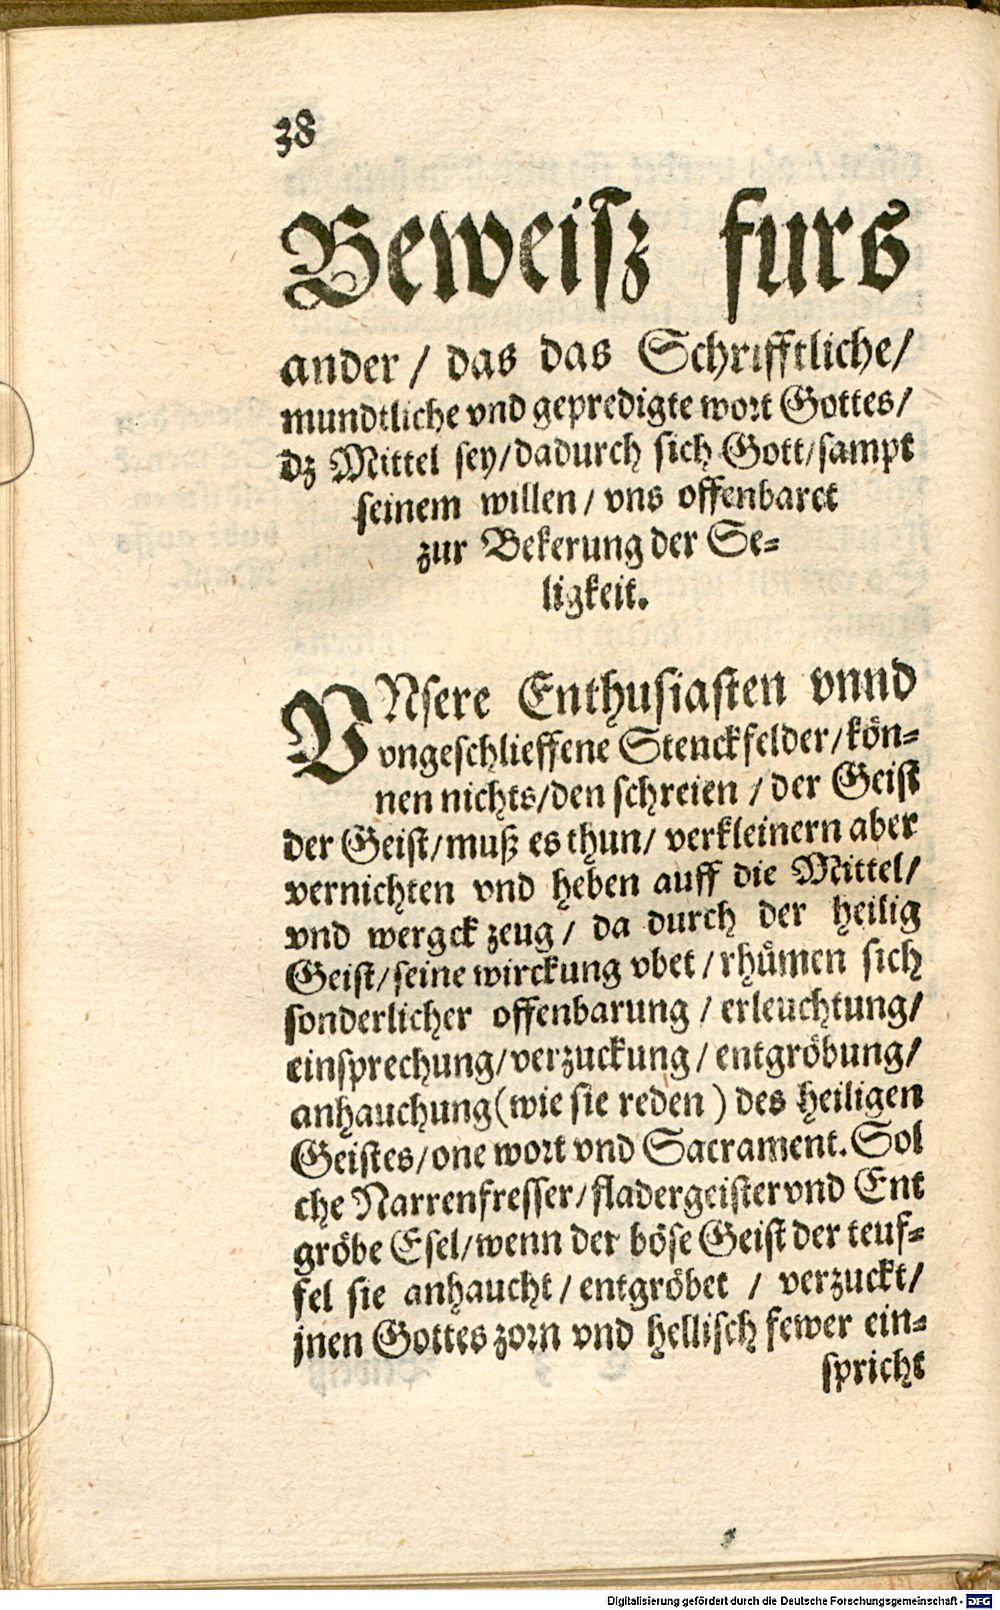 38
Beweiſz furs
ander / das das Schrifftliche/
mundtliche vnd gepredigte wort Gottes/
dz Mittel ſey/dadurch ſich Gott/ſampt
ſeinem willen / vns offenbaret
zur Bekerung der Se=
ligkeit.
VNſere Enthuſiaſten vnnd
vngeſchlieffene Stenckfelder/kön=
nen nichts/den ſchreien / der Geiſt
der Geiſt/muß es thun/ verkleinern aber
vernichten vnd heben auff die Mittel/
vnd wergck zeug / da durch der heilig
Geiſt/ſeine wirckung vbet / rhuͤmen ſich
ſonderlicher offenbarung / erleuchtung/
einſprechung/verzuckung / entgröbung/
anhauchung(wie ſie reden ) des heiligen
Geiſtes/one wort vnd Sacrament. Sol
che Narrenfreſſer/fladergeiſter vnd Ent
gröbe Eſel/wenn der böſe Geiſt der teuf=
fel ſie anhaucht / entgröbet / verzuckt/
jnen Gottes zorn vnd helliſch fewer ein=
ſpricht
Digitalisierung gefördert durch die Deutsche Forschungsgemeinschaft - DFG